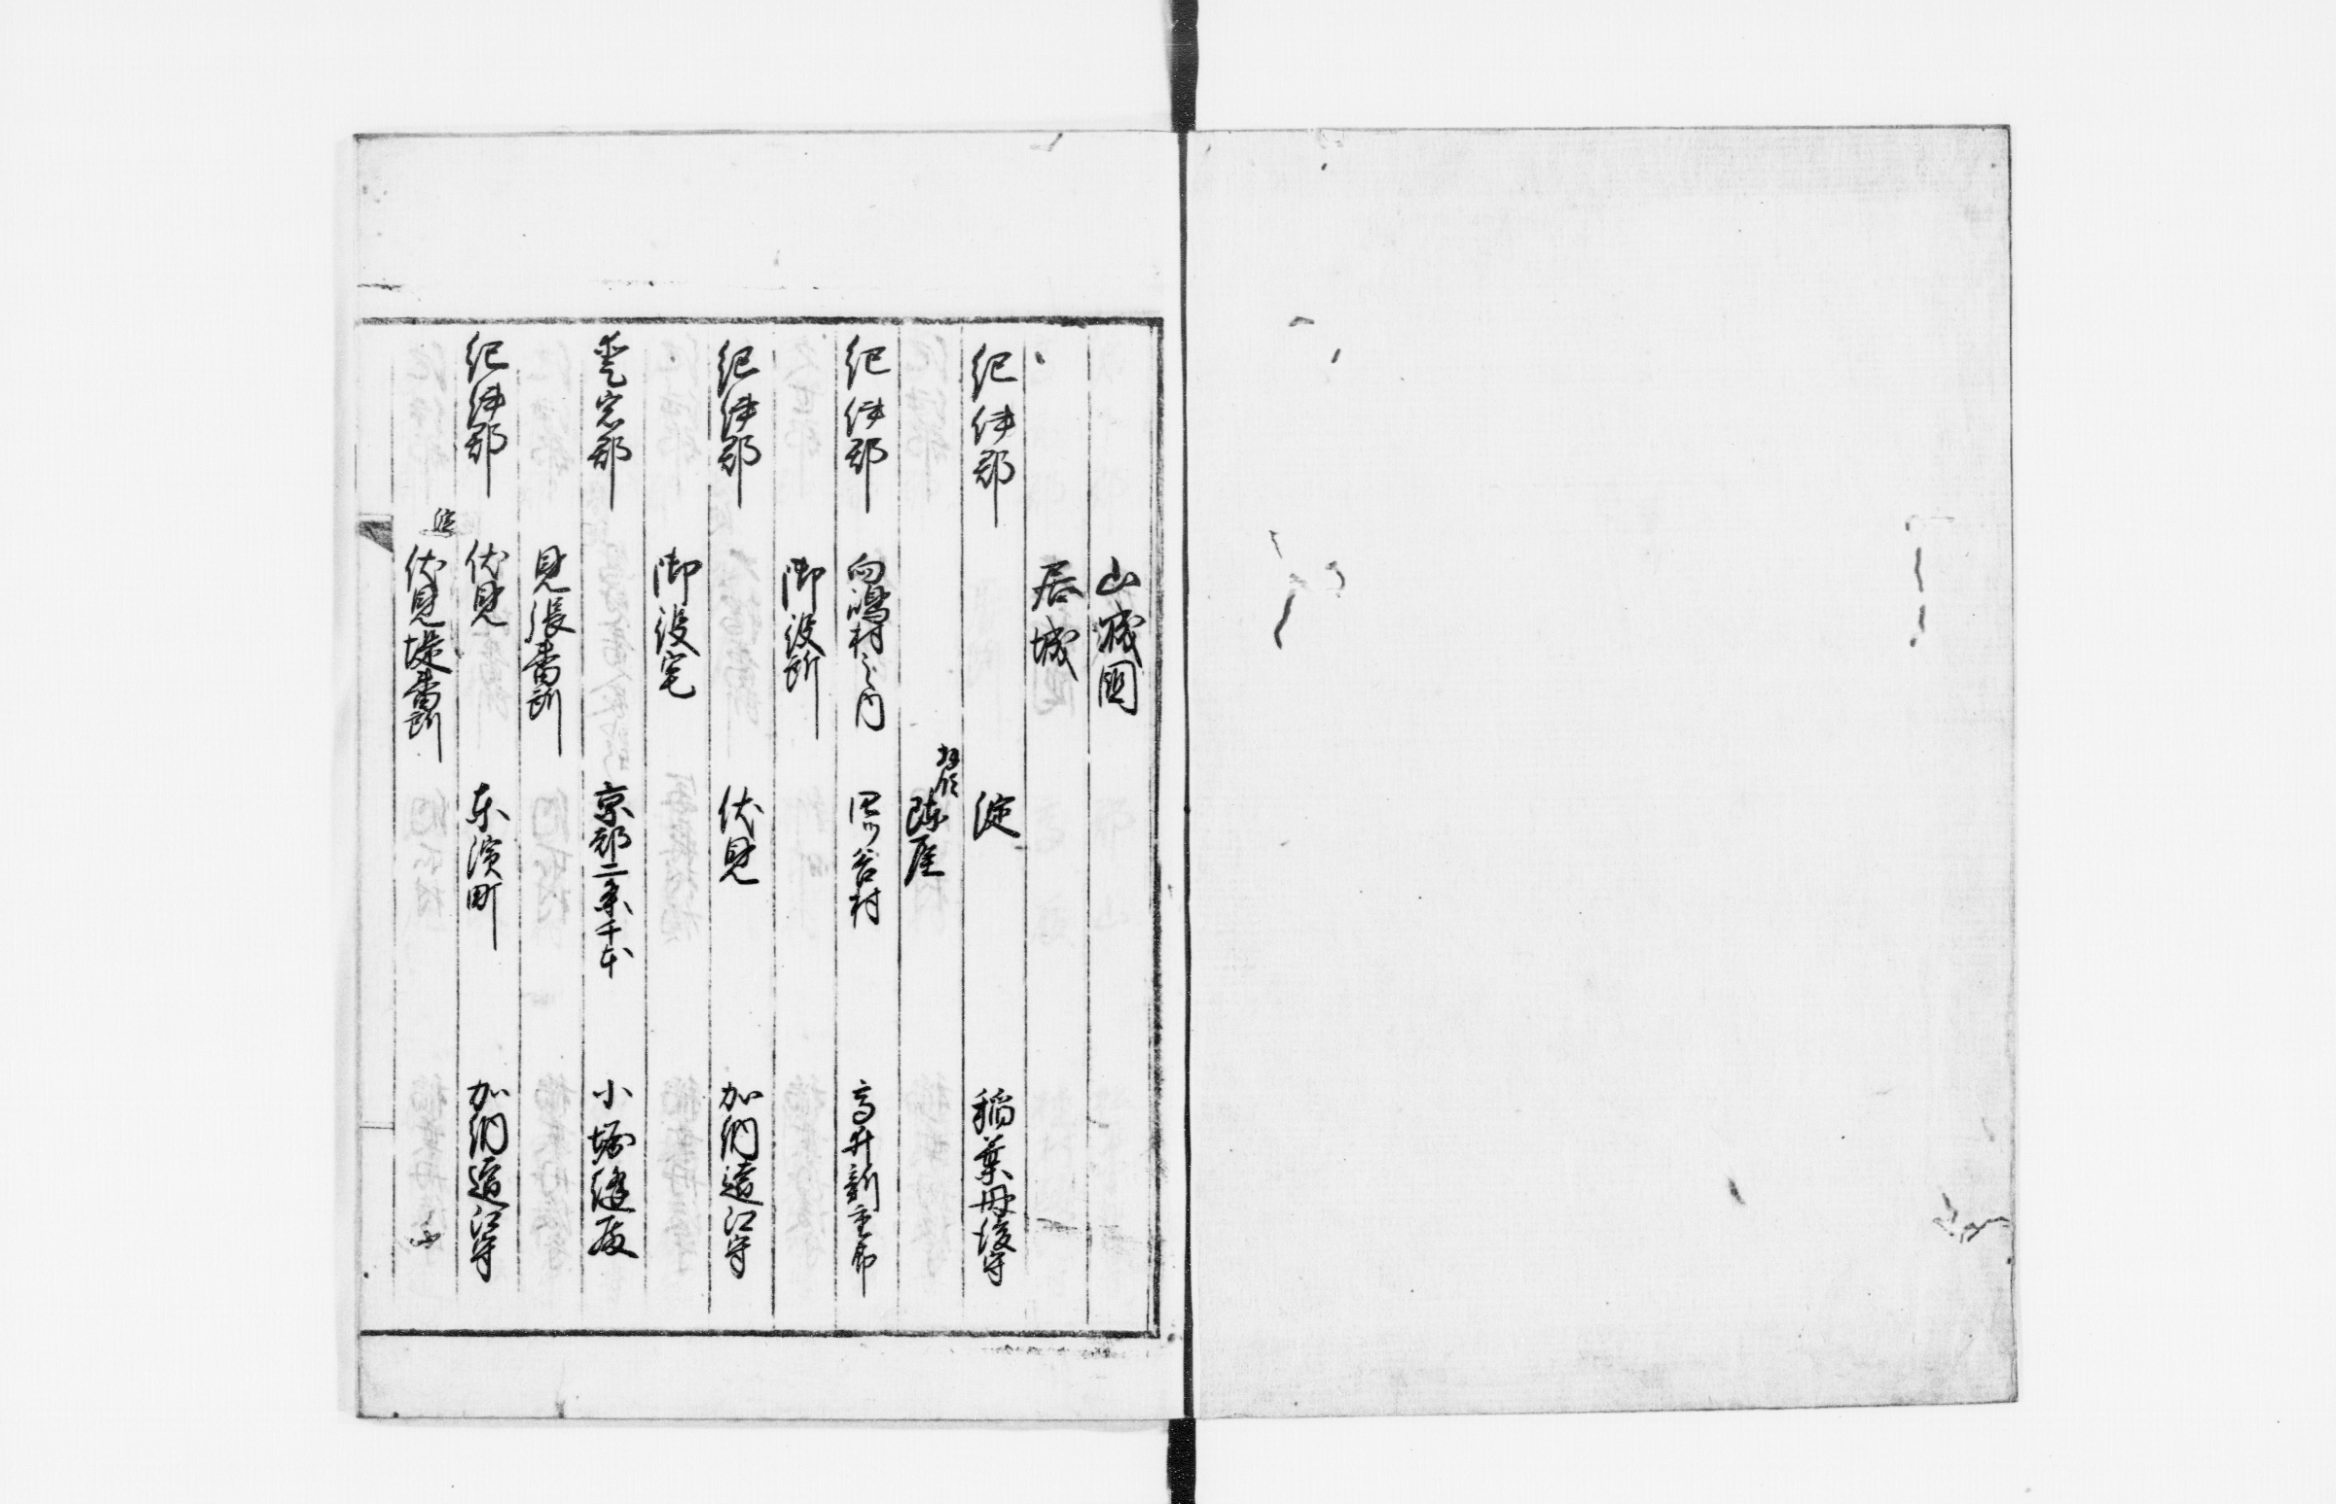 山城國
居城
紀伊郡 淀 稲葉丹後守
陣屋
紀伊郡 向嶋村之内 谷村 高井新重郎
御役所
紀伊郡 伏見 加納遠江守
御役宅
愛宕郡 京都二条千本 小堀縫殿
見張番所
紀伊郡 伏見 東濱町 加納遠江守
伏見堤番所